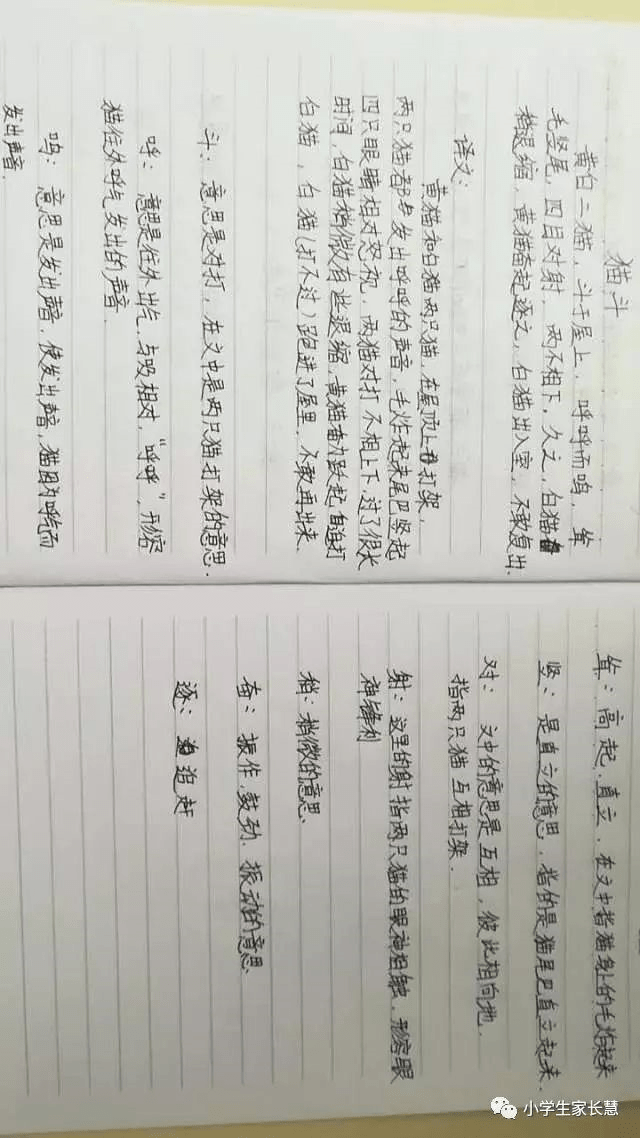 猫斗
黄白二猫，斗于屋上，呼呼而鸣，耸
毛竖尾，四目对射，两不相下，久之，白猫
稍退缩，黄猫奋起逐之，白猫出入室，不敢复出.
译文：
黄猫和白猫两只猫，在屋顶上打架，
两只猫都发出呼呼的声音，毛炸起来尾巴竖起
四只眼睛相对怒视，两猫对打不相上下过了很长
时间，白猫稍微有些退缩，黄猫奋力跃起追打
白猫，白猫(打不过)跑进了屋里，不敢再出来.
斗：意思是对打，在文中是两只猫打架的意思.
呼：意思是往外出气，与吸相对，“呼呼”，形容
猫往外呼气发出的声音.
鸣：意思是发出声音，使发出声音，猫因为呼气而
发出声音.
耸：高起、直立，在文中指猫身上的毛炸起来
竖：是直立的意思，指的是猫尾巴直立起来.
对：文中的意思是互相，彼此相向地，
指两只猫互相打架.
射：这里的射指两只猫的眼神相触，形容眼
神锋利
稍：稍微的意思.
奋：振作，鼓劲、振动的意思
逐：追赶
小学生家长慧